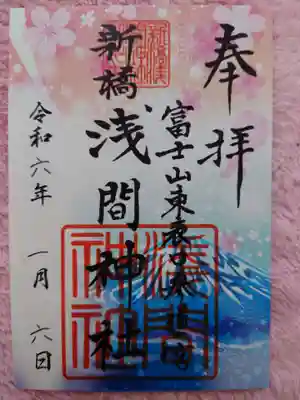 奉拝
富士山東表口
新橋
浅間神社
令和六年 一月 六日
浅間神社